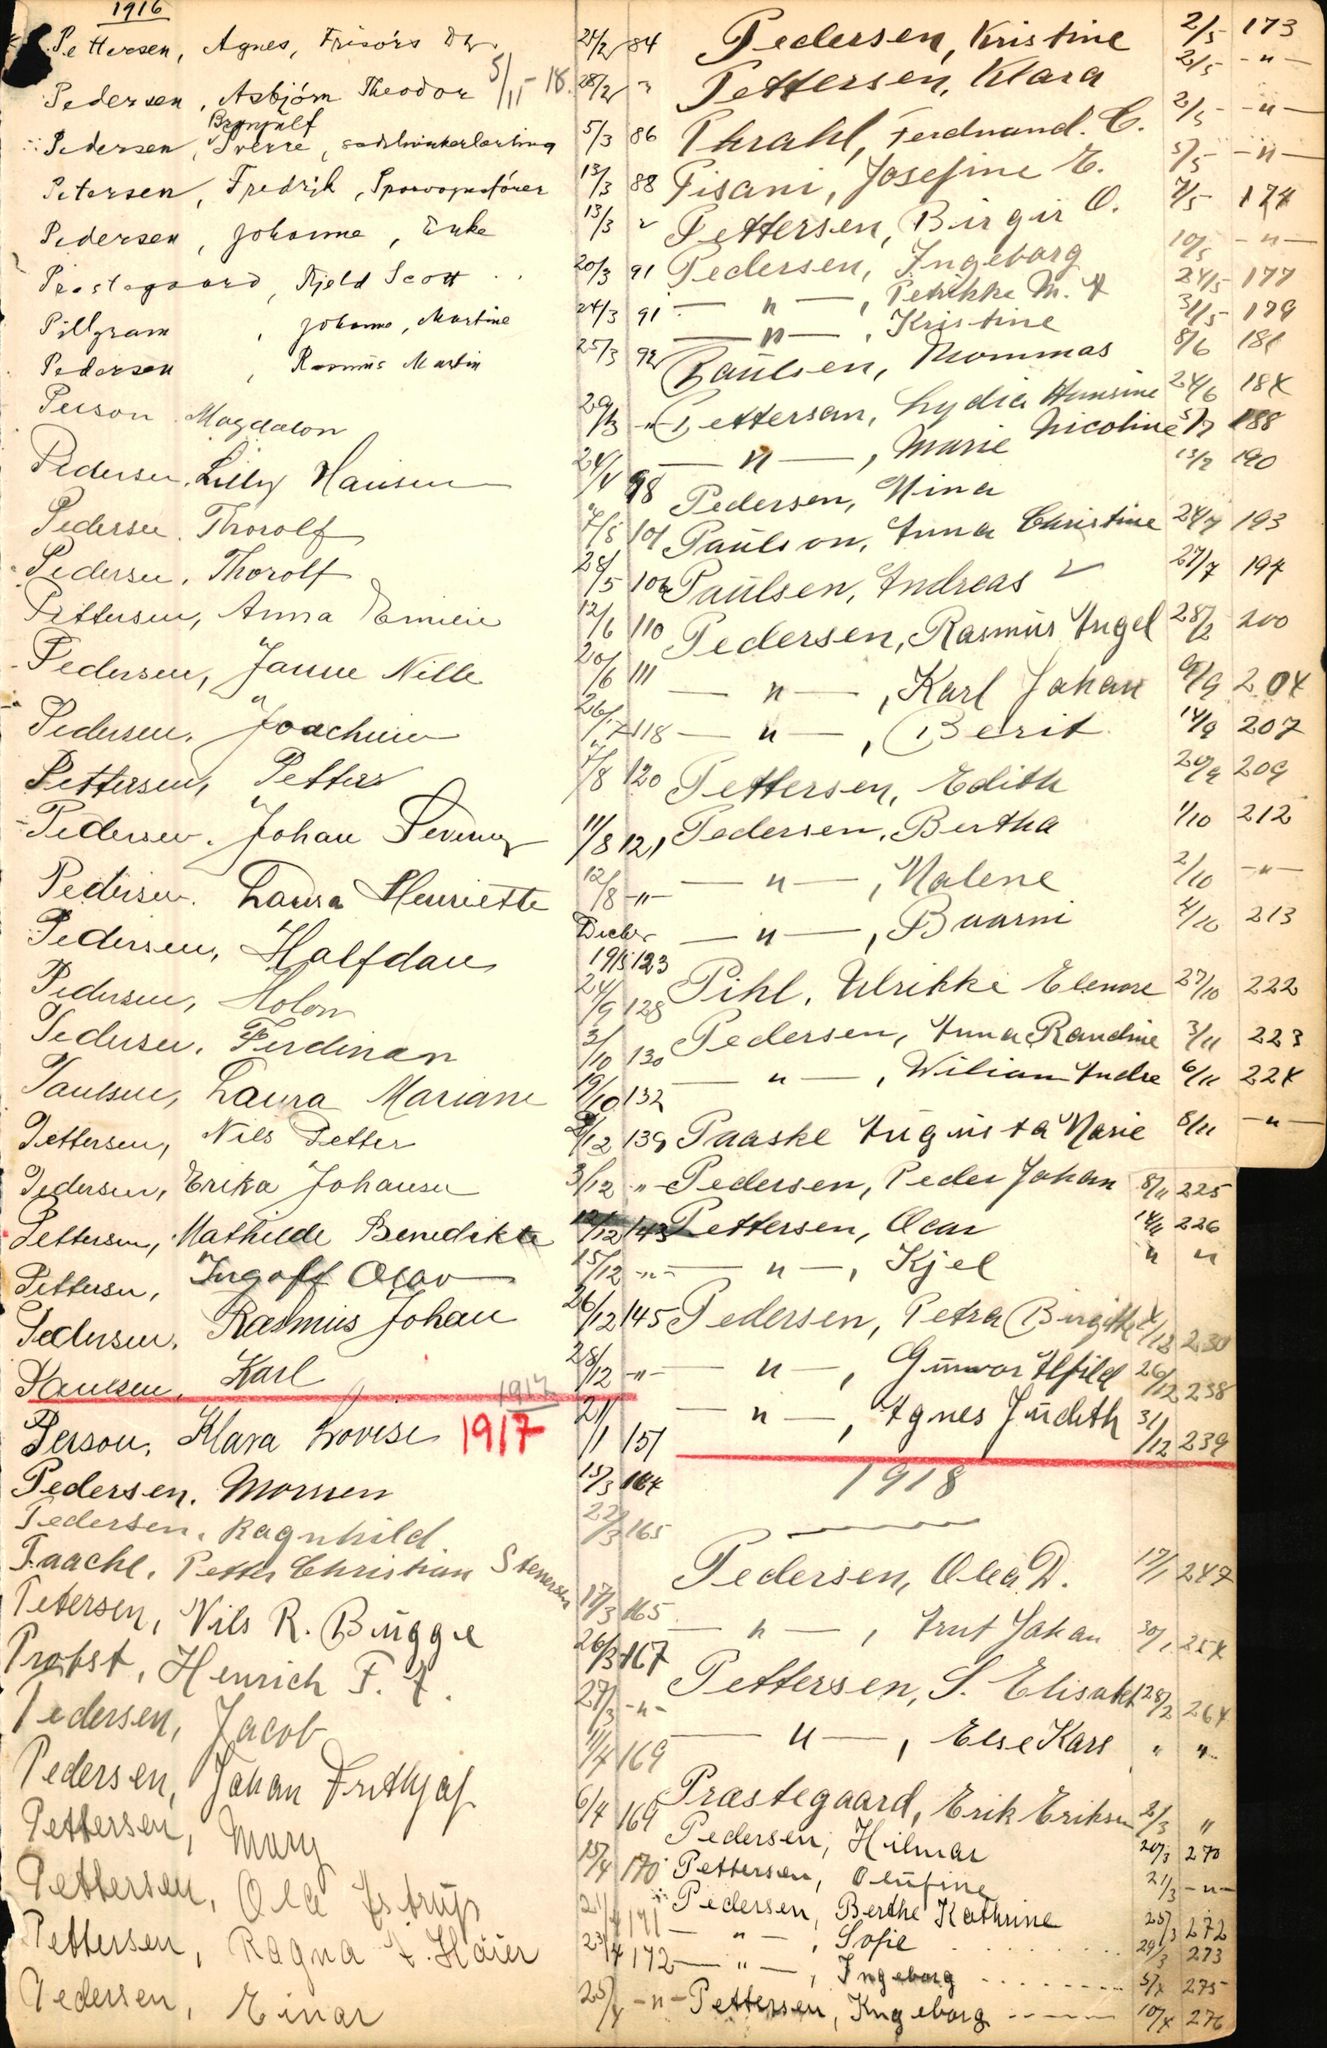 1916
Pettersen, Agnes, Frisörs D 24/2 84
Pedersen, Asbjörn Theodor 5/11-18. 28/2 "
Brynjulf
Pedersen, Sverre, 5/3 86
Petersen, Fredrik, Sporvognsförer 13/3 88
Pedersen, Johanne, Enke 13/3 "
Præstegaard, Kjeld Scott 20/3 91
Pillgram, Johanne, Martine 24/3 91
Pedersen, Rasmus Martin 25/3 92
Person Magdalon 29/3 -"-
Pedersen, Lilly Hansen 24/4 98
Pedersen, Thorolf 7/5 101
Pedersen, Thorolf 28/5 106
Pettersen, Anna Emilie 12/6 110
Pedersen, Janne Nille 20/6 111
Pedersen, Joachim 26/7 118
Pettersen, Petter 7/8 120
Pedersen, Johan Severin 11/8 121
Pedersen, Laura Henriette 12/8 -"-
Pedersen, Halfdan 19/8 123
Pedersen, Holon 24/9 128
Pedersen, Ferdinan 3/10 130
Paulsen, Laura Mariane 19/10 132
Pettersen, Nils Petter 2/12 139
Pedersen, Erika Johansen 3/12 "
Pettersen, Mathilde Benedikte 12/12 143
Pettersen, Ingolf Olav 15/12 -"-
Pedersen, Rasmus Johan 26/12 145
Paulsen, Karl 28/12 -"-
1917
Person, Klara Lovise 1917 21/1 151
Pedersen, Monsen 15/3 164
Pedersen, Ragnhild 22/3 165
Paache, Petter Christian Stenersen 17/3 165
Petersen, Nils R. Bugge 26/3 167
Probst, Henrich F. 27/3 -"-
Pedersen, Jacob 11/4 169
Pedersen, Johan Frithjof 6/4 169
Pettersen, Mary 15/4 170
Pettersen, Ole 21/4 171
Pettersen, Ragna Höier 23/4 172
Pedersen, Einar 25/4 -"-
Pedersen, Kristine 2/5 173
Pettersen, Klara 2/5 -"-
Phrahl, Ferdinand. C. 2/5 -"-
Pisani, Josefine E. 5/5 -"-
Pettersen, Birgir O. 7/5 174
Pedersen, Ingeborg 10/5 -"-
-"-, Petrikke M. 24/5 177
-"-, Kristine 31/5 179
Paulsen, Thommas 8/6 181
Pettersen, Lydia Hansine 24/6 184
-"-, Marie Nicoline 5/7 188
Pedersen, Nina 13/7 190
Paulson, Anna Christine 24/7 193
Paulsen, Andreas 27/7 194
Pedersen, Rasmus Angel 28/7 200
-"-, Karl Johan 8/9 204
-"-, Berit 14/9 207
Pettersen, Edith 20/9 209
Pedersen, Bertha 1/10 212
-"-, Malene 2/10 -"-
-"-, Baarni 4/10 213
Pihl, Ulrikke Elenore 27/10 222
Pedersen, Anna Randine 3/11 223
-"-, Wiliam Andre 6/11 224
Paaske Augusta Marie 8/11 -"-
Pedersen, Peder Johan 8/11 225
Pettersen, Oscar 14/11 226
-"-, Kjel " "
Pedersen, Petra Birgitte 1/12 230
-"-, Gunvor Alfild 26/12 238
-"-, Agnes Judith 31/12 239
1918
Pedersen, Olea D. 17/1 247
-"-, Arnt Johan 30/1 254
Pettersen, S. Elisabet 28/2 264
-"-, Else Kars " "
Præstegaard, Erik Eriksen 2/3 "
Pedersen, Hilmar 20/3 270
Pettersen, Olufine 21/3 -"-
Pedersen, Berthe Kathrine 25/3 272
-"-, Sofie 29/3 273
-"-, Ingeborg 5/4 275
Pettersen, Ingeborg 10/4 276